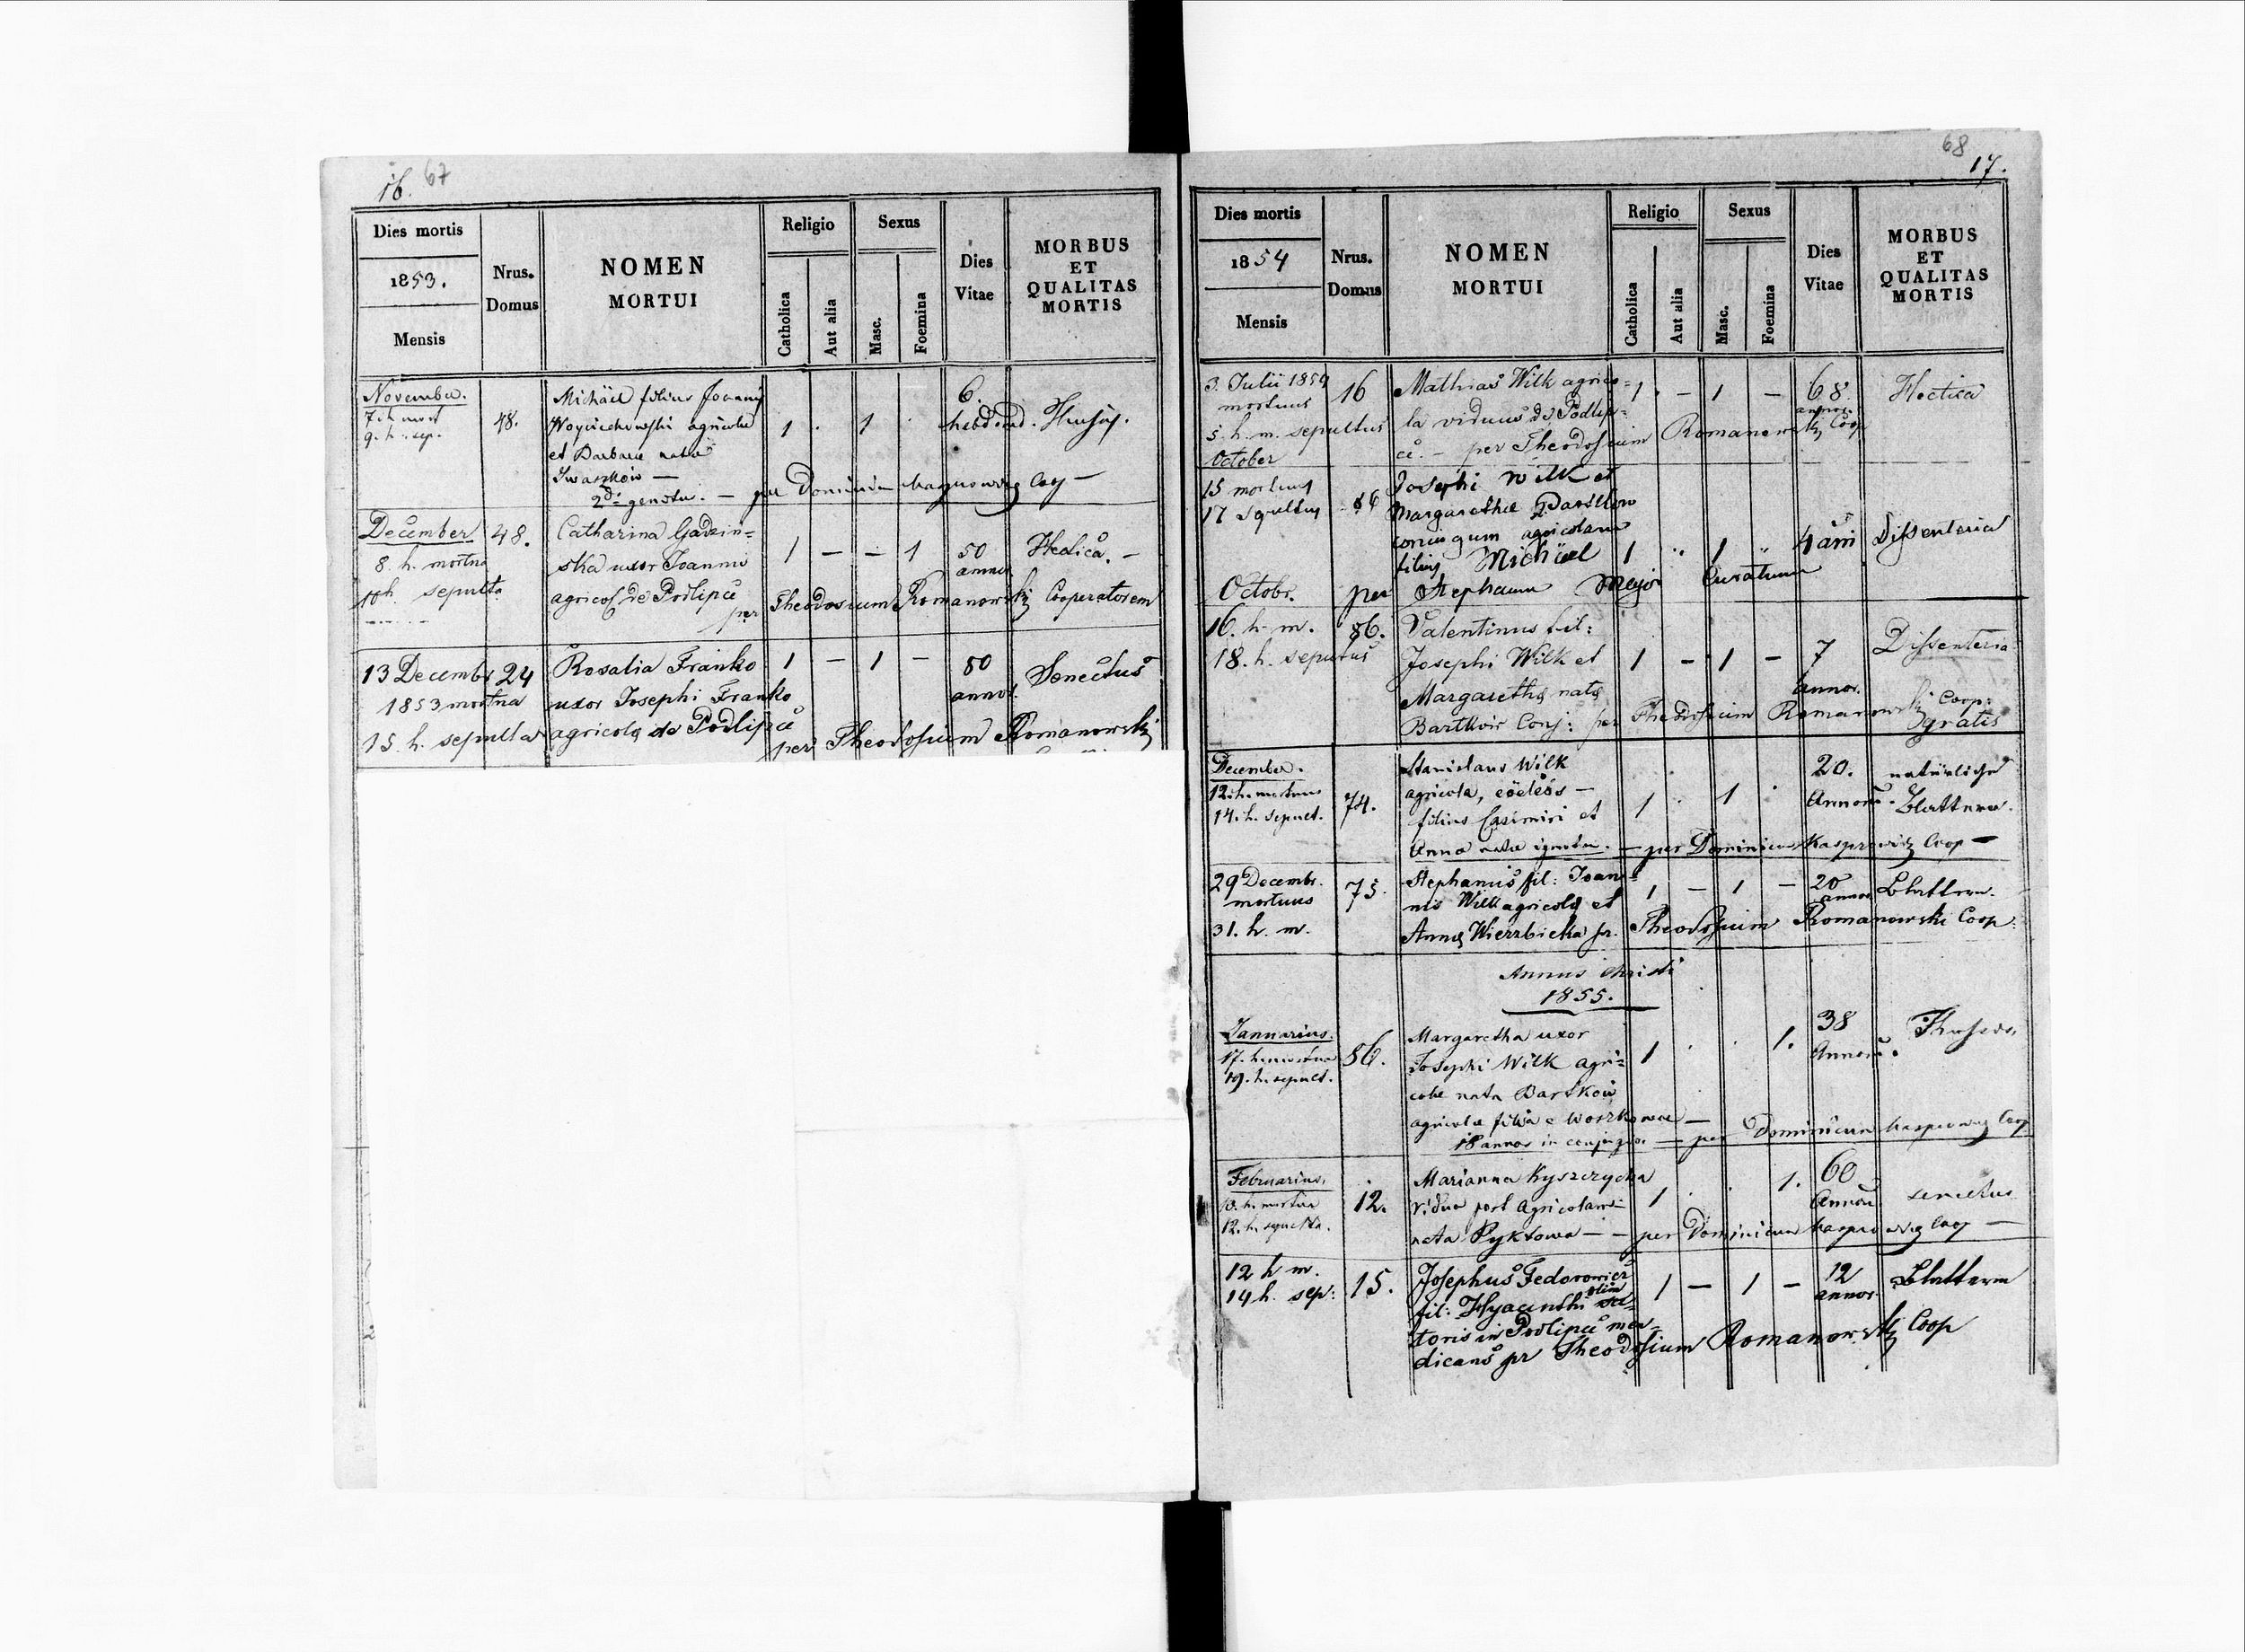 16. 67
Dies mortis
1853.
Mensis
Nrus.
Domus
NOMEN
MORTUI
Religio
Catholica
Aut alia
Sexus
Masc.
Foemina
Dies
Vitae
MORBUS
ET
QUALITAS
MORTIS
November.
7. h. mort
9. h. sep.
48.
Michäel filius Joannis
Woyciechowski agricolae
et Barbarae natae
Iwaszków —
1 1
6.
hebdomad.
per Dominicum Coop —
December
8. h. mortua
10 h. sepulta
48.
Catharina Gadzin=
ska uxor Joannis
agricol de Podlipce
1 — — 1
50
annor
Hectica. —
per Theodosium Romanowski Cooperatorem
13 Decembr
1853 mortua
15. h. sepulta
24
Rosalia Franko
uxor Josephi Franko
agricolę de Podlipce
1 — 1 —
80
annor.
Senectus
per Theodosium Romanowski
68
17.
Dies mortis
1854
Mensis
Nrus.
Domus
NOMEN
MORTUI
Religio
Catholica
Aut alia
Sexus
Masc.
Foemina
Dies
Vitae
MORBUS
ET
QUALITAS
MORTIS
3. Julii 1854
mortuus
5. h. m. sepultus
16
Mathias Wilk agrico=
la viduus de Podlip=
ce. — per Theodosium Romanowski Coop
1 — 1 —
68
annor.
Hectica
October
15 mortuus
17 sepultus
86
Josephi Wilk et
Margarethae Bartkow
coniugum agricolarum
filius Michäel
1 " 1 "
4 ani
Dissenteria
per Stephanum Curatum
Octobr.
16. h. m.
18. h. seputus
86.
Valentinus fil:
Josephi Wilk et
Margarethę natę
Bartkow Conj: per Theodosium Romanowski Coop:
gratis
1 — 1 —
7
annor.
Dissenteria
December.
12. h. mortuus
14. h. sepult.
74.
Stanislaus Wilk
agricola, coelebs —
filius Casimiri et
Anna natae ignotae. — per Dominicum Kasprowicz Coop —
1 1
20.
Annorū.
natürliche
Blattern.
29 Decembr.
mortuus
31. h. m.
75.
Stephanus fil: Joan=
nis Wilk agricolę et
Annę Wierzbicka pr. Theodosium Romanowski Coop:
1 — 1 —
20
annor
Blattern.
Annus Christi
1855.
Januarius.
17. h. mortua
19. h. sepult.
86.
Margaretha uxor
Josephi Wilk agri=
colae nata Bartkow
agricolae filia e
18 annos in conjugio — per Dominicum Kasprowicz Coop
1 1.
38
Annorū.
Februarius.
10. h. mortua
12. h. sepulta.
12.
Marianna Kyszczycha
vidua post Agricolam —
nata Pyktowa — — per Dominicum Kasprowicz Coop —
1 1.
60
Annorū
senectus
12 h m.
14 h. sep:
15.
Josephus Fedorowicz
fil: Hyacinthi olim
toris in Podlipce men=
dicans pr Theodosium Romanowski Coop
1 — 1 —
12
annor.
Blattern